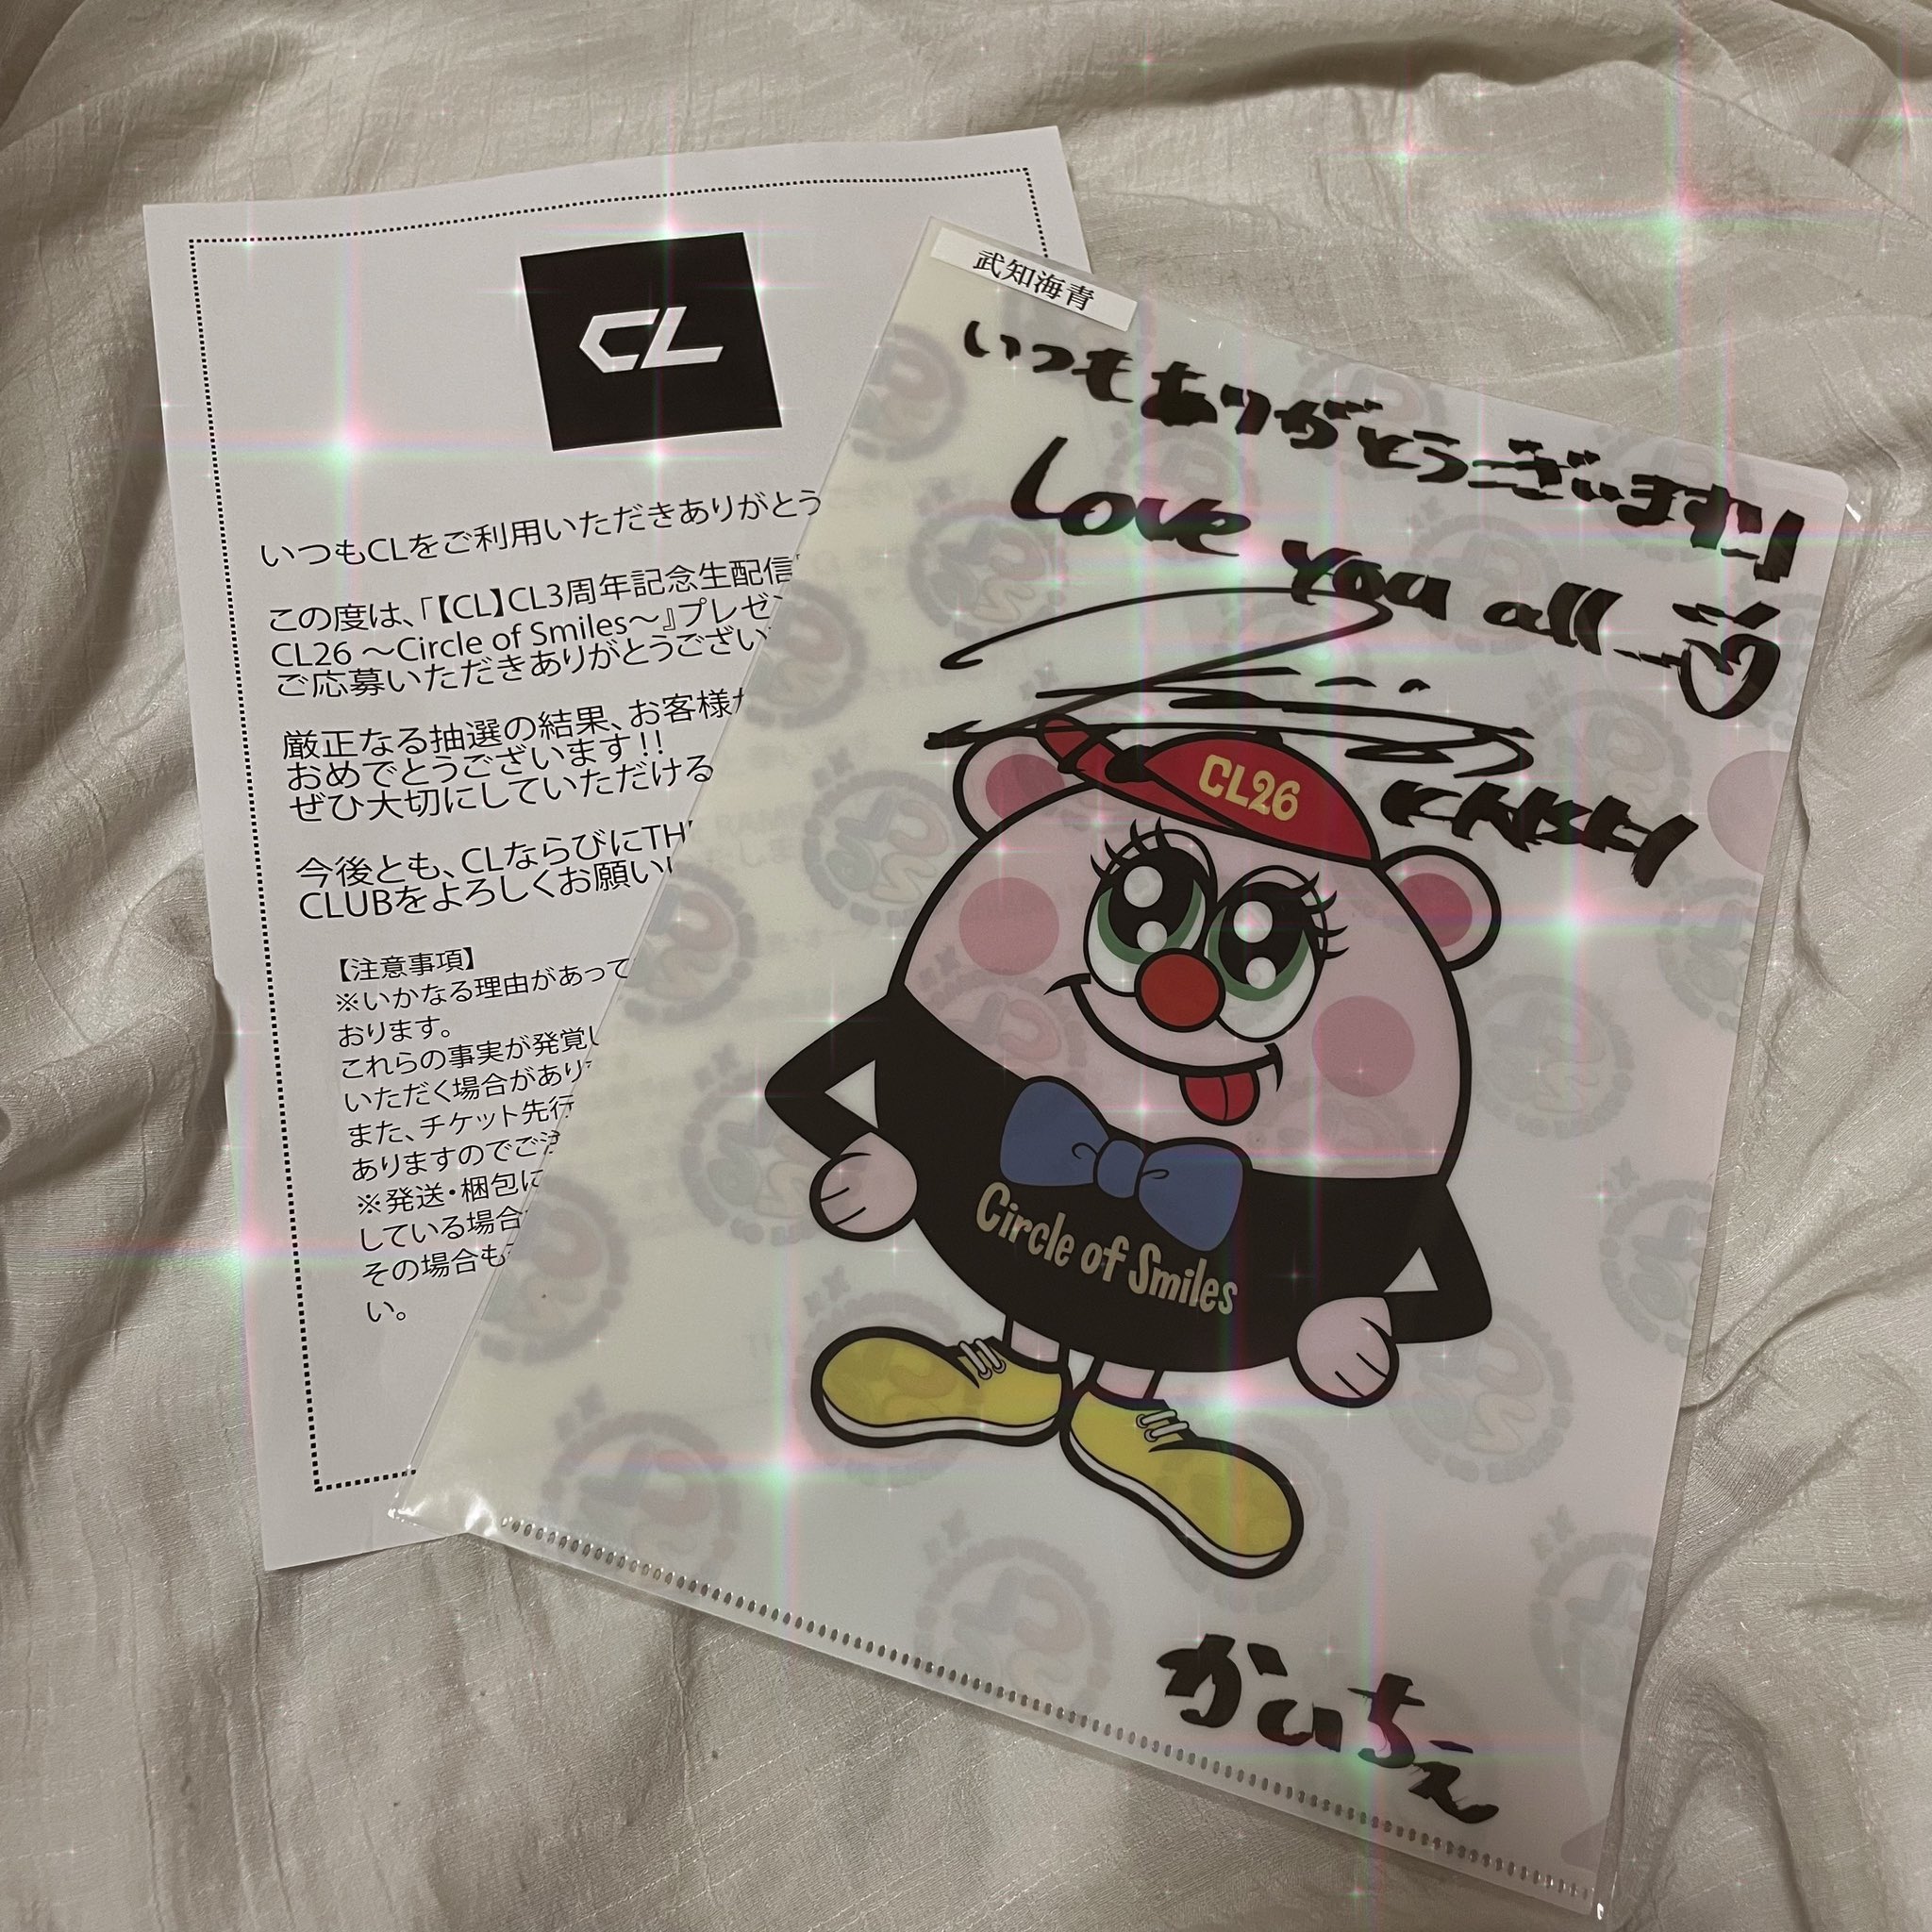 CL
いつもCLをご利用いただきありがとう
この度は、「【CL】CL3周年記念生配信
CL26 ～Circle of Smiles～』プレゼン
ご応募いただきありがとうござい
厳正なる抽選の結果、お客様が
おめでとうございます!!
ぜひ大切にしていただける
今後とも、CLならびにTH
CLUBをよろしくお願い
【注意事項】
※いかなる理由があって
おります。
これらの事実が発覚し
いただく場合があり
また、チケット先行
ありますのでご注
※発送・梱包に
している場合
その場合も
い。
武知海青
いつもありがとうございます!!
Love you all
CL26
Circle of Smiles
かいちぇ